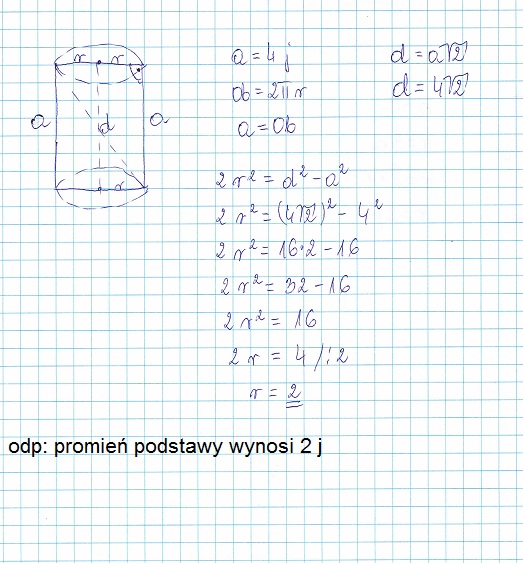 r r
a d a
r
a = 4 j
ob = 2πr
a = Ob
d = a√2
d = 4√2
2 r² = d² - a²
2 r² = (4√2)² - 4²
2 r² = 16·2 - 16
2 r² = 32 - 16
2 r² = 16
2 r = 4 /:2
r = 2
odp: promień podstawy wynosi 2 j